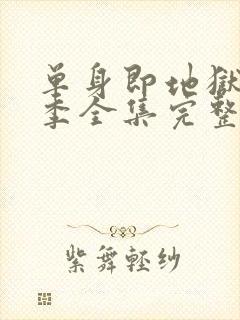 单身即地獄
季全集完整
紫舞轻纱